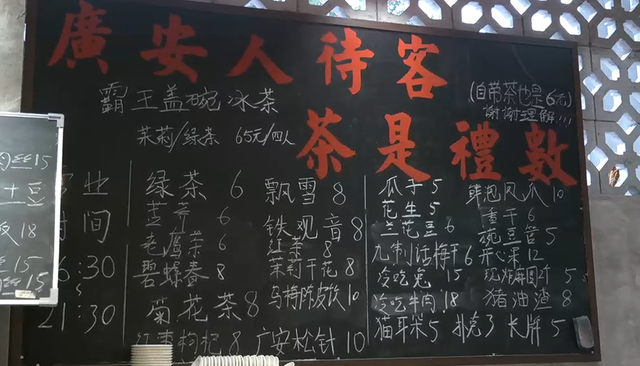 廣安人待客
茶是禮數
霸王盖碗冰茶
茉菊/绿茶 65元/四人
(自带茶也是6元)
谢谢理解!!!
业
时间
6:30
21:30
绿茶 6
苦丁 6
老鹰茶 6
碧螺春 8
菊花茶 8
红枣枸杞 8
飘雪 8
铁观音 8
红茶 8
茉莉干花 8
乌梅陈皮饮 10
广安松针 10
瓜子 5
花生 5
兰花豆 6
九制话梅干 6
冷吃兔 15
冷吃牛肉 18
猫耳朵 5
扑克 3
鲜泡凤爪 10
香干 6
豌豆 5
开心果 12
5
猪油渣 8
长牌 5
15
土豆
18
15
15